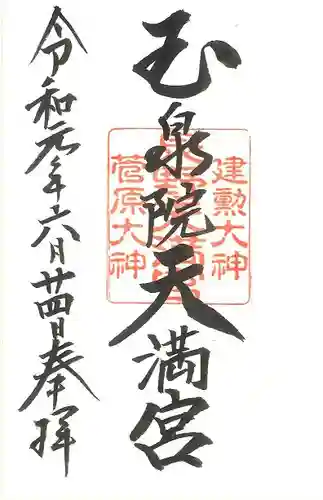 建勲大神
玉泉院天満宮
菅原大神
令和元年六月廿四日奉拝